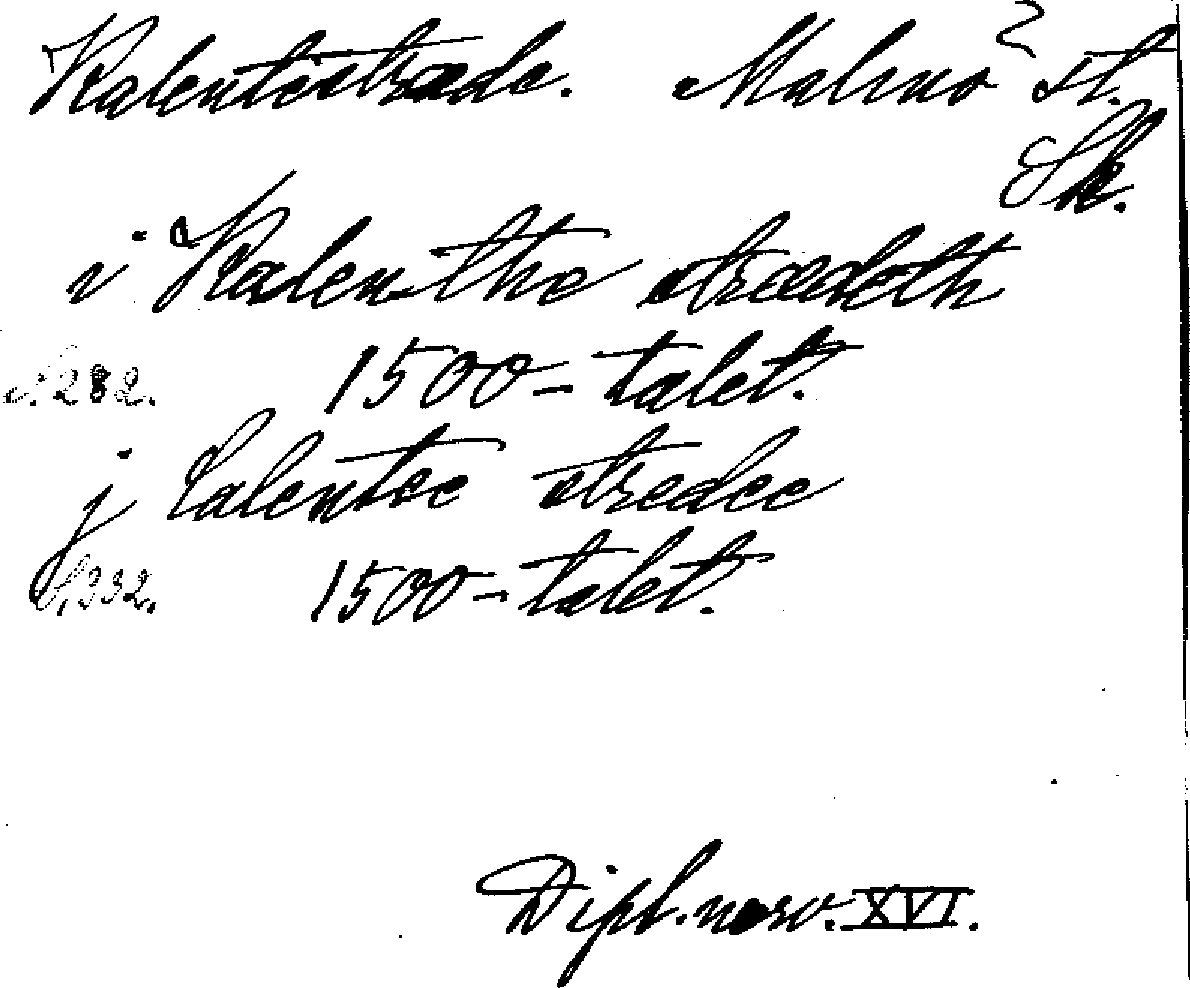 Kalentistræde. Malmö st.
Sk.
i Kalenthe strædeth
s. 282. 1500-talet.
j Calentee stredee
S. 332. 1500-talet.
Dipl. norv. XVI.